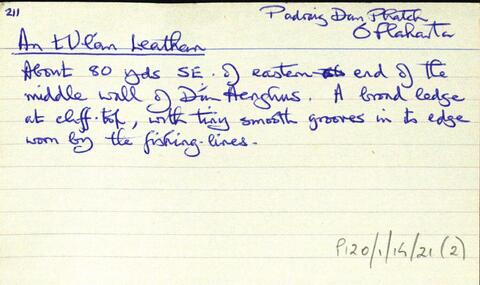 211
Padraig Dan Phatch
Ó Flaharta
An tUlán Leathan
About 80 yds SE. of eastern end of the
middle wall of Dún Aenghus. A broad ledge
at cliff-top, with tiny smooth grooves in its edge
worn by the fishing-lines.
P120/1/14/21 (2)